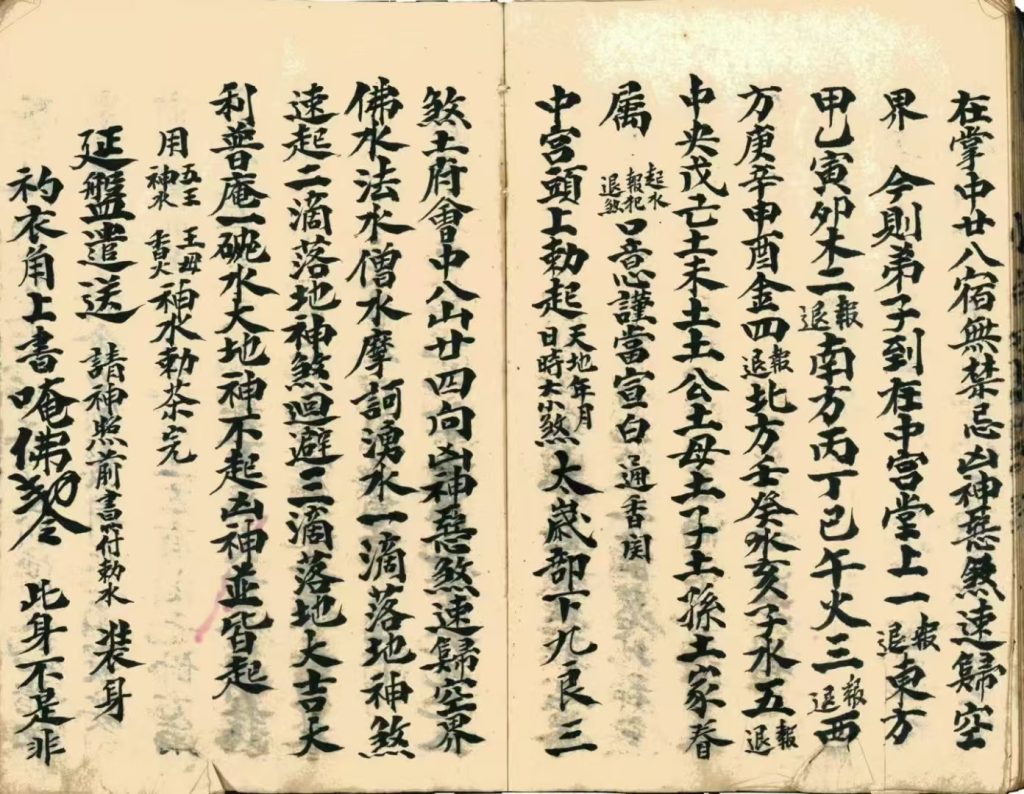 在掌中廿八宿無禁忌凶神惡煞速歸空
界 今則弟子到在中宮堂上一報退東方
甲乙寅卯木二報退南方丙丁巳午火三報退西
方庚辛申酉金四報退北方壬癸水亥子水五報退
中央戊己土未土土公土母土子土孫土家眷
属 起水報犯退煞口意謹當宣白 通香関
中宮頭上勅起天地年月日時大小煞太歲部下九良三
煞土府會中八山廿四向凶神惡煞速歸空界
佛水法水僧水摩訶湧水一滴落地神煞
速起二滴落地神煞迴避三滴落地大吉大
利普庵一碗水大地神不起凶神並皆起
用五王神水王母香火神水勅茶完
延盤遣送 請神照前書符勅水 裝身
礿衣角上書唵佛勅令 此身不是非